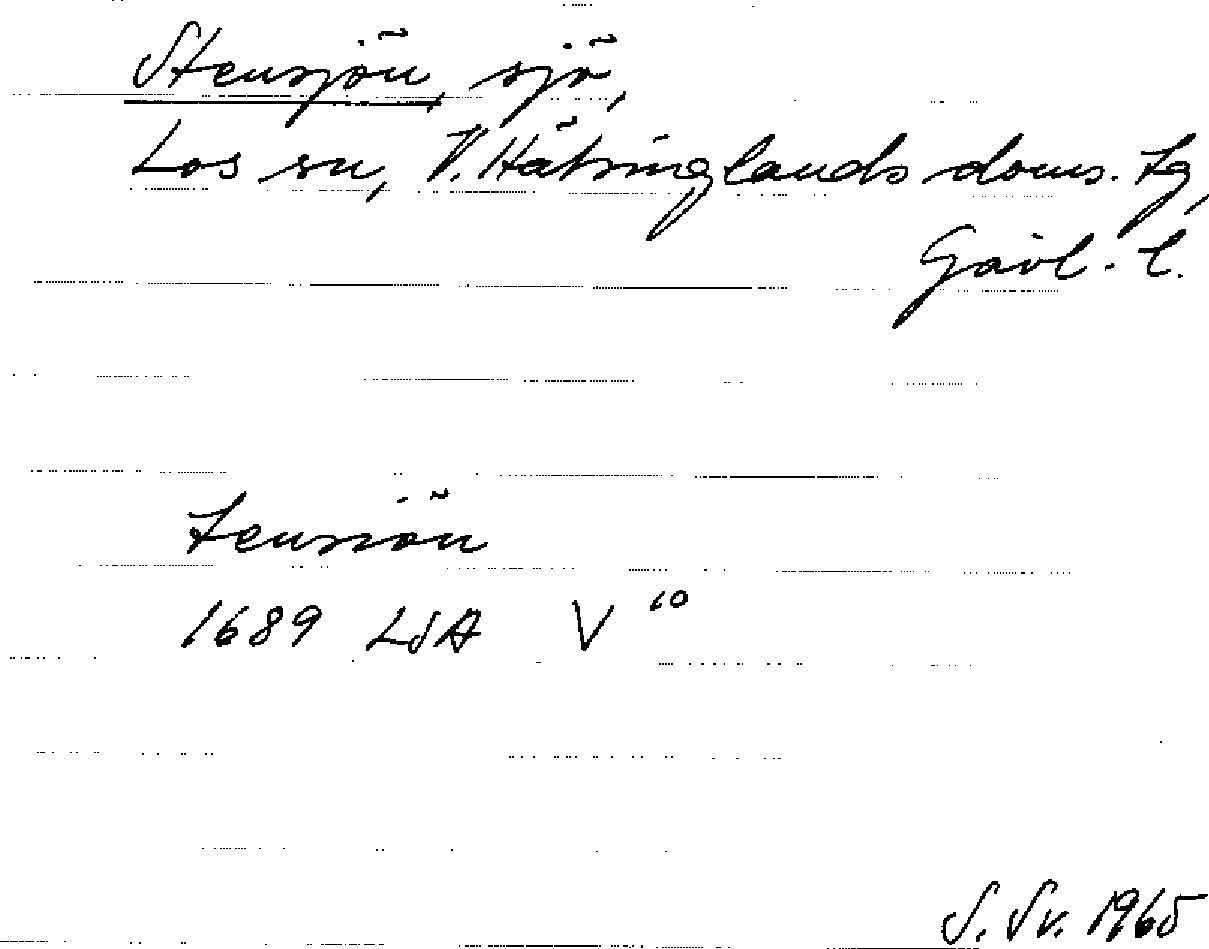 Stensjön, sjö,
Los sn, V. Hälsinglands doms. tg,
Gävl. l.
tensiön
1689 LSA V 10
S. Sv. 1965